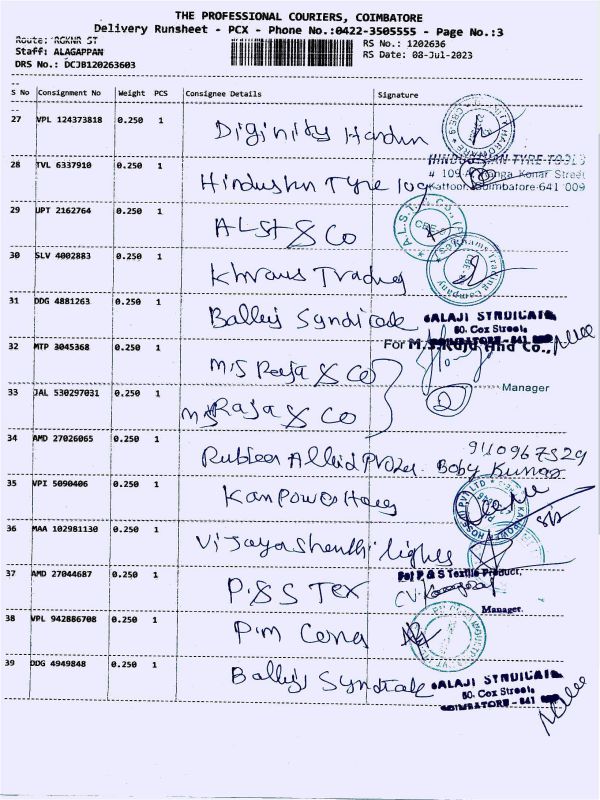 THE PROFESSIONAL COURIERS, COIMBATORE
Delivery Runsheet - PCX - Phone No.:0422-3505555 - Page No.:3
Route: RGKNR ST
RS No.: 1202636
Staff: ALAGAPPAN
RS Date: 08-Jul-2023
DRS No.: DCJB120263603
S No Consignment No Weight PCS Consignee Details Signature
27 VPL 124373818 0.250 1
28 TVL 6337910 0.250 1 Hindustan Tyre
HINDUSTHAN TYRE TOOLS
Konar Street
Kattoor, Coimbatore-641 009
29 UPT 2162764 0.250 1 ALST & Co
A.L.S.T. & Co.
CBE-9
30 SLV 4002883 0.250 1 Trading
Trading Company
31 DDG 4881263 0.250 1 Syndicate
ALAJI SYNDICATE
80. Cox Street,
32 MTP 3045368 0.250 1 M/S Raja & Co
For M.S.Raja And Co.,
33 JAL 530297031 0.250 1 M/S Raja & Co
Manager
34 AMD 27026065 0.250 1 Rubber Allied
Boby Kumar
35 VPI 5090406 0.250 1
36 MAA 102981130 0.250 1 Vijayashanthi lights
37 AMD 27044687 0.250 1 P.&S Tex
For P & S Textile Product,
Manager.
38 VPL 942886708 0.250 1 P.m
39 DDG 4949848 0.250 1 Syndicate
ALAJI SYNDICATE
80. Cox Street,
COIMBATORE - 641